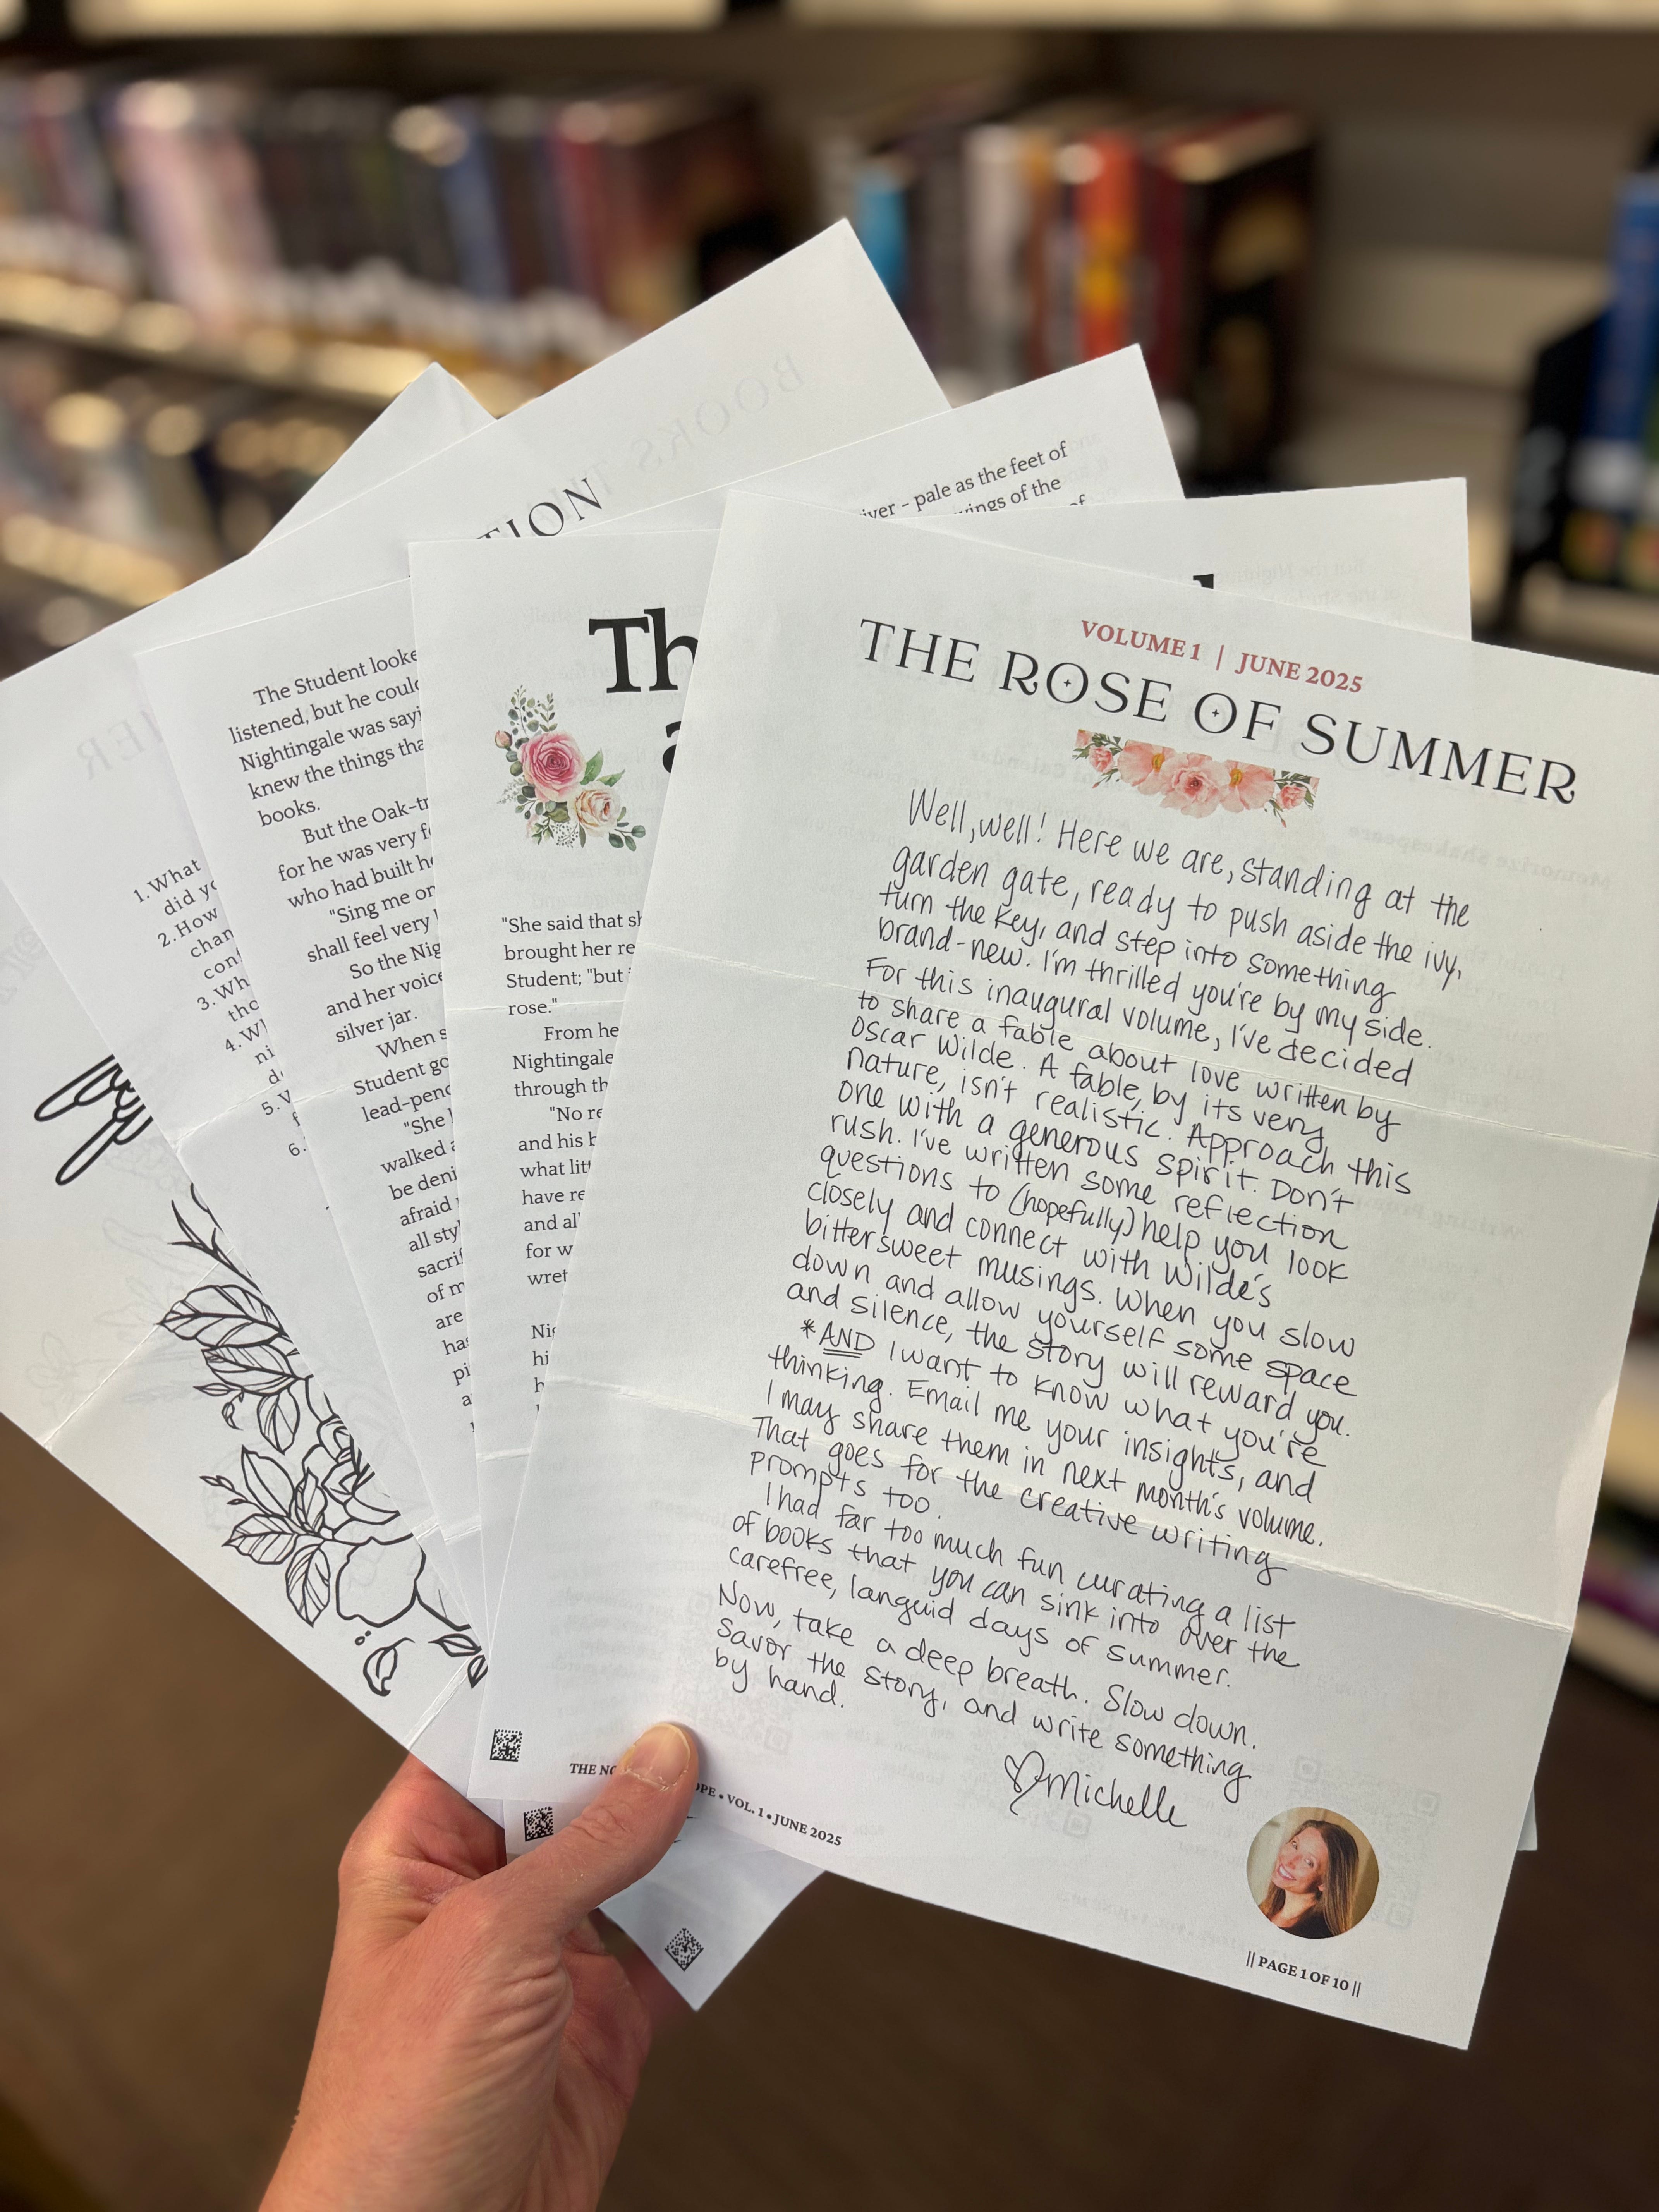 VOLUME 1 | JUNE 2025
THE ROSE OF SUMMER
Well, well! Here we are, standing at the
garden gate, ready to push aside the ivy,
turn the key, and step into something
brand-new. I'm thrilled you're by my side.
For this inaugural volume, I've decided
to share a fable about love written by
Oscar Wilde. A fable, by its very
nature, isn't realistic. Approach this
one with a generous spirit. Don't
rush. I've written some reflection
questions to (hopefully) help you look
closely and connect with Wilde's
bittersweet musings. When you slow
down and allow yourself some space
and silence, the story will reward you.
*AND I want to know what you're
thinking. Email me your insights, and
I may share them in next month's volume.
That goes for the creative writing
prompts too.
I had far too much fun curating a list
of books that you can sink into over the
carefree, languid days of summer.
Now, take a deep breath. Slow down.
Savor the story, and write something
by hand.
Michelle
THE NO OPE • VOL. 1 • JUNE 2025
|| PAGE 1 OF 10 ||
Th
a
"She said that sh
brought her re
Student; "but i
rose."
From he
Nightingale
through th
"No re
and his h
what litt
have re
and al
for w
wret
Nig
hi
h
The Student looke
listened, but he coul
Nightingale was sayi
knew the things tha
books.
But the Oak-tr
for he was very f
who had built h
"Sing me on
shall feel very
So the Nig
and her voice
silver jar.
When s
Student go
lead-penc
"She
walked a
be deni
afraid
all sty
sacrif
of m
are
has
pi
a
1. What
did yo
2. How
chan
con
3. Wh
tho
4. Wh
ni
d
5. V
f
6.
TION
BOOKS IN
iver – pale as the feet of
wings of the
of